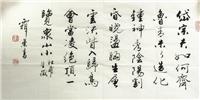 岱宗夫如何齊
魯青未了造化
鍾神秀陰陽割
昏曉盪胸生層
雲決眥入歸鳥
會當凌絕頂一
覽衆山小